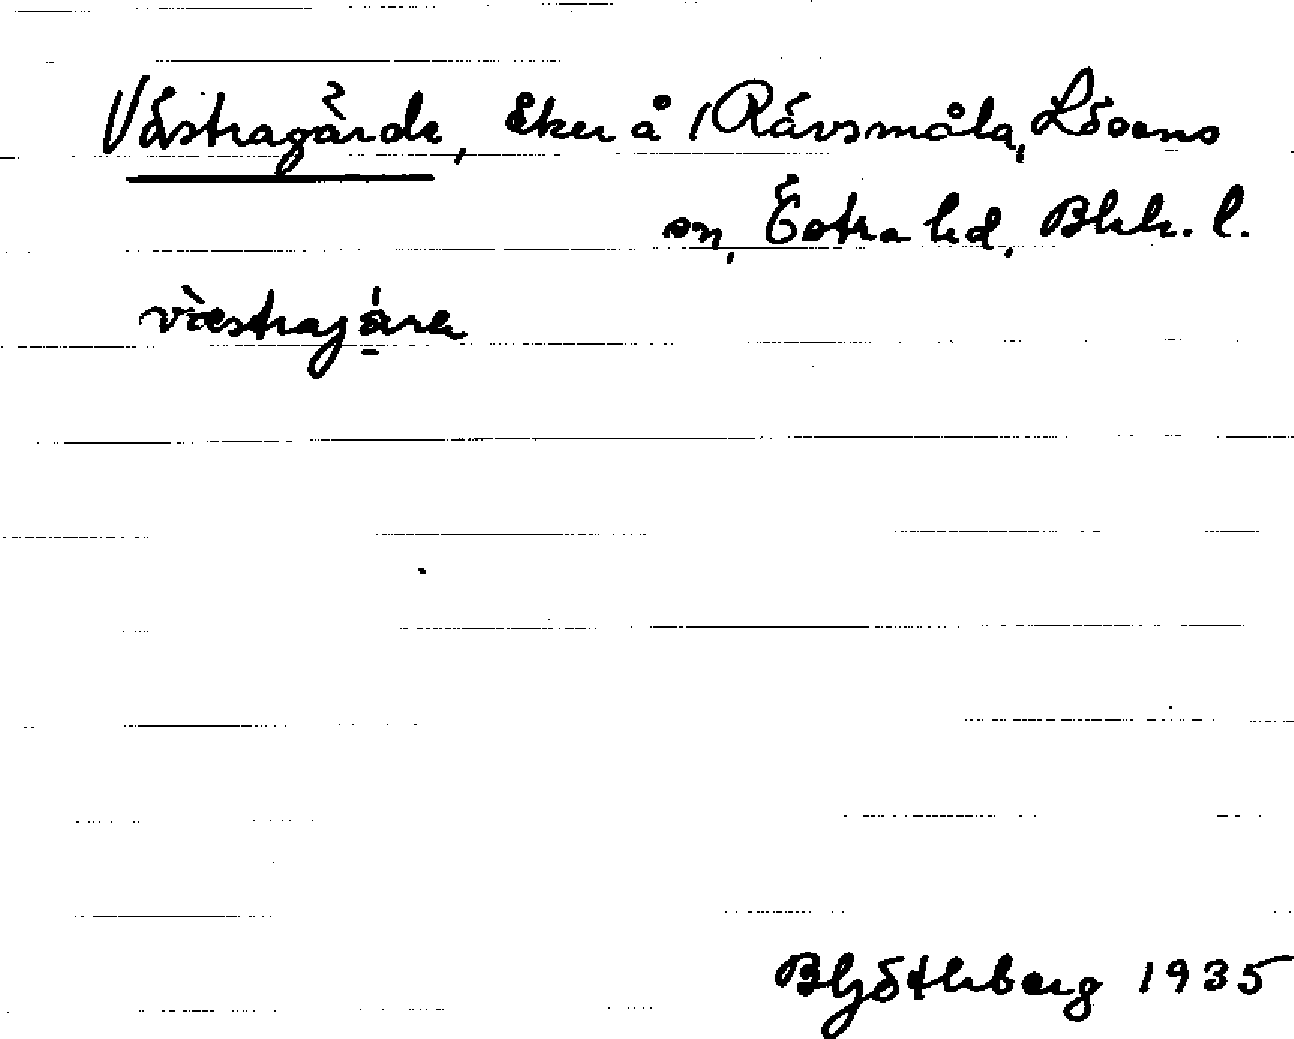 Västragärde, åker å 1 Rävsmåla, Lösens
sn, Östra hd, Blek. l.
vὰstragja̱ra
B Götlberg 1935